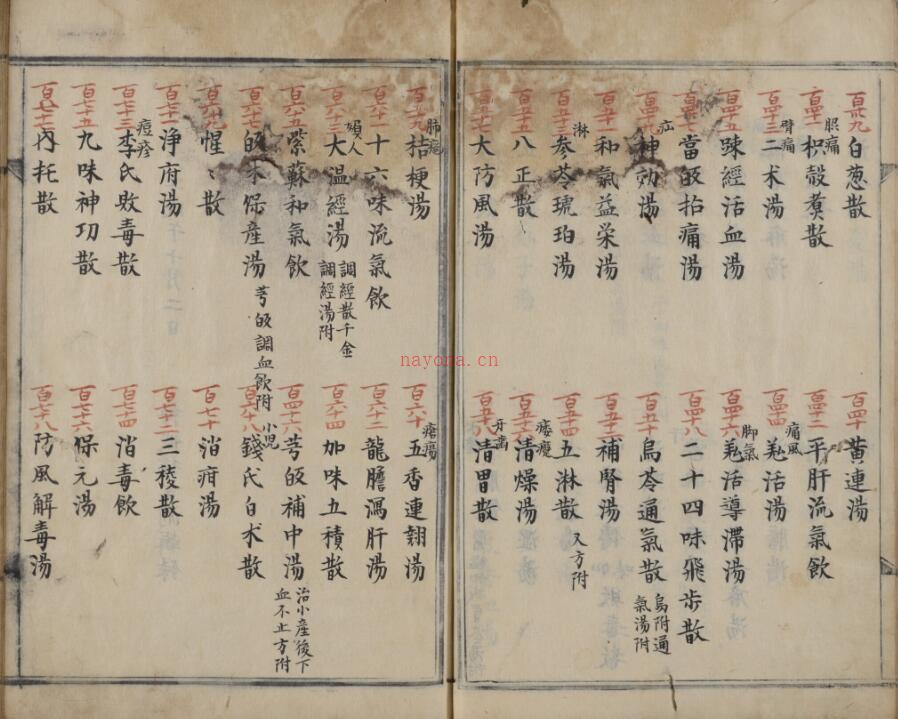 百卅九 白葱散
百四十 黄連湯
百四十一 眼痛 枳殼煑散
百四十二 平肝流氣飲
百四十三 臂痛 二术湯
百四十四 痛風 羗活湯
百四十五 踈經活血湯
百四十六 脚氣 羗活導滯湯
百四十七 當皈拈痛湯
百四十八 二十四味飛步散
百四十九 疝 神効湯
百五十 烏苓通氣散 烏附通氣湯附
百五十一 和氣益栄湯
百五十二 補腎湯
百五十三 淋 參苓琥珀湯
百五十四 五淋散 又方附
百五十五 八正散
百五十六 痿 清燥湯
百五十七 大防風湯
百五十八 牙齒 清胃散
百五十九 肺癰 桔梗湯
百六十 瘡瘍 五香連翹湯
百六十一 十六味流氣飲
百六十二 龍膽瀉肝湯
百六十三 婦人 大温經湯 調經散千金調經湯附
百六十四 加味五積散
百六十五 紫蘇和氣飲
百六十六 芎皈補中湯 治小産後下血不止方附
百六十七 皈术保産湯 芎皈調血飲附
百六十八 小児 錢氏白术散
百六十九 惺〻散
百七十 消疳湯
百七十一 浄府湯
百七十二 三稜散
百七十三 痘疹 李氏敗毒散
百七十四 消毒飲
百七十五 九味神功散
百七十六 保元湯
百七十七 内托散
百七十八 防風解毒湯
nayona.cn